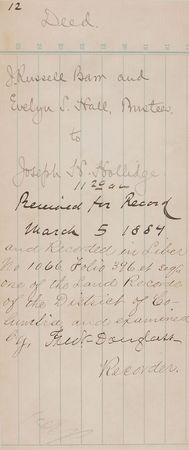 12
Deed.
J. Russell Barr and
Evelyn S. Hall, Trustee
to
Joseph H. Hollidge
11 20 am
Received for Record
March 5 1884
and Recorded in Liber
No 1066 Folio 396 et seq
one of the Land Records
of the District of Co-
lumbia and examined
by, Fredk Douglass
Recorder.